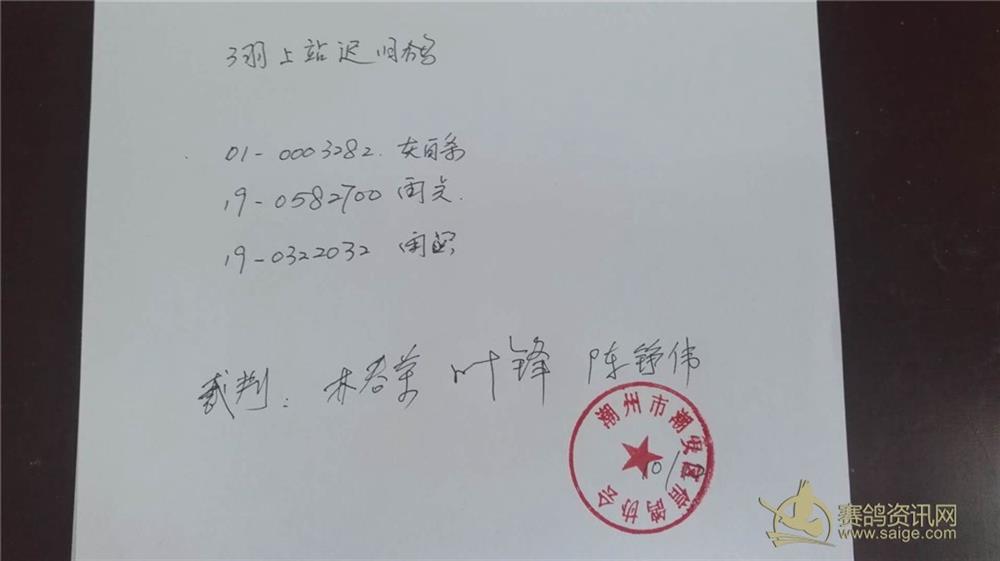 3羽上站迟归鸽
01-0003282. 灰白条
19-0582700 雨点.
19-0322032 雨
裁判: 林春 叶锋 陈铮伟
潮州市潮安区信鸽协会
10/
赛鸽资讯网
www.saige.com